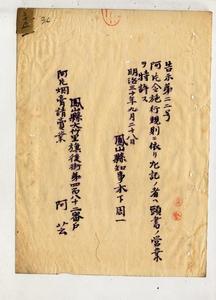 告示第二二号
阿片令施行規則ニ依リ左記ノ者ヘ頭書ノ営業
ヲ特許ス
明治三十年九月二十八日
鳳山縣知事木下周一
鳳山縣大竹里旗後街第四百八十二番戸
阿片烟膏請賣業
阿芸